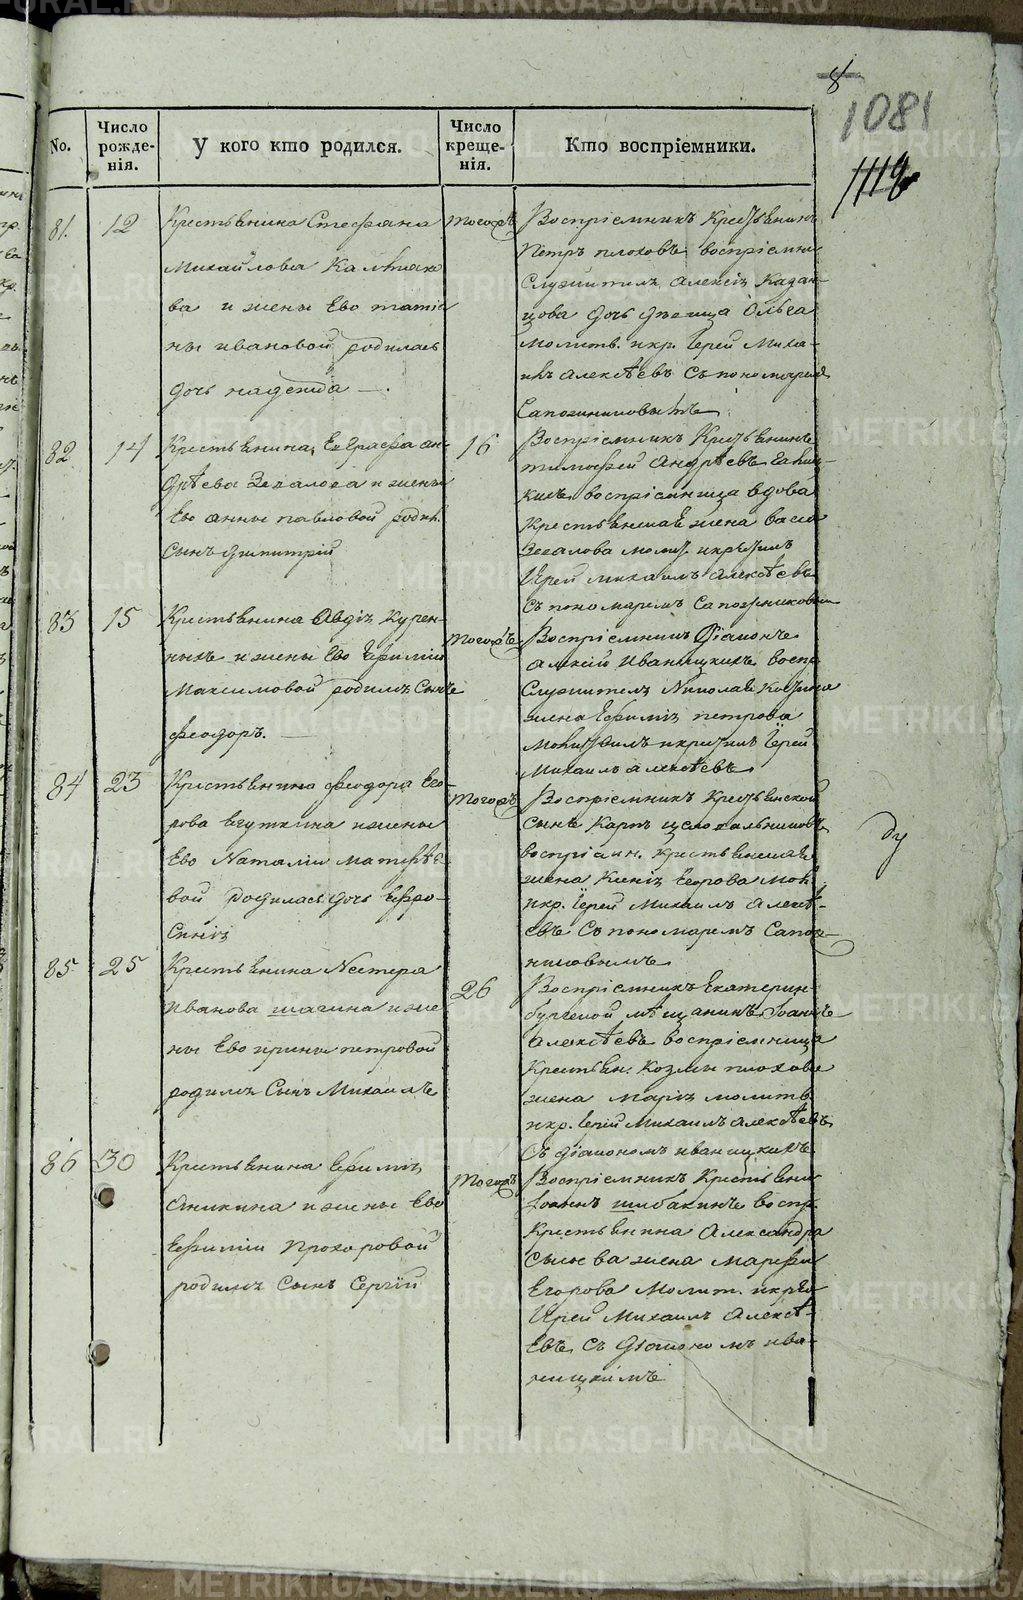 8
1081
1118
No.
Число рожде-нія.
У кого кто родился.
Число креще-нія.
Кто воспріемники.
81.
12
Крестьянина Стефана
Михайлова
ва и жены Ево татіа
ны ивановой родилась
дочь надежда
тогожъ
Воспріемникъ Крестьянинъ
Петръ плоховъ воспріемни
Служителя Алексія Казан-
цова дочь девица Ольга
молитв. икр. Іерей Миха-
илъ алексѣевъ Съ пономаремъ
Сапожниковымъ
82
14
Крестьянина Евграфа ан-
дрѣева Зегалова и жены
Ево анны павловой роди.
Сынъ димитрій
16
Воспріемникъ Крестьянинъ
тимофей андрѣевъ
воспріемница вдова
Крестьянская жена
Зегалова молит. икрестилъ
Іерей михаилъ алексѣевъ
Съ пономаремъ Сапожниковымъ
83
15
Крестьянина Авдія Курен-
ныхъ и жены Ево Ефиміи
Максимовой родилъ Сынъ
феодоръ.
тогожъ
Воспріемникъ Діаконъ
Алексій Иваницкихъ воспр
Служителя Николая
жена Ефимія петрова
молитвилъ икрестилъ Іерей
Михаилъ алексѣевъ
84
23
Крестьянина феодора Его-
рова Вяткина ижены
Ево Наталіи матфѣе
вой родилась дочь Ефро-
Синія
тогожъ
Воспріемникъ Крестьянской
сынъ Карпъ
воспріемн. крестьянская
жена Ксенія Егорова мол.
икр. Іерей Михаилъ Алексѣ-
евъ Съ пономаремъ Сапож-
никовымъ
ду
85
25
Крестьянина Нестера
Иванова шагина и же
ны Ево ирины петровой
родилъ Сынъ Михаилъ
26
Воспріемникъ Екатерин-
бургской мѣщанинъ Іоаннъ
Алексѣевъ воспріемница
Крестьян. Козмы плохова
жена марія молитв.
икр. Іерей Михаилъ алексѣевъ
Съ діакономъ иваницкихъ
86
30
Крестьянина Ефимія
Аникина и жены Ево
Ефиміи Прохоровой
родилъ Сынъ Сергій
тогожъ
Воспріемникъ Крестьянин
Іоаннъ шибакинъ воспр.
Крестьянина Александра
Сысоева жена марфа
Егорова Молит. икрес
Іерей Михаилъ Алексѣ-
Евъ Съ Діакономъ ива-
ницкимъ
METRIKI.GASO-URAL.RU